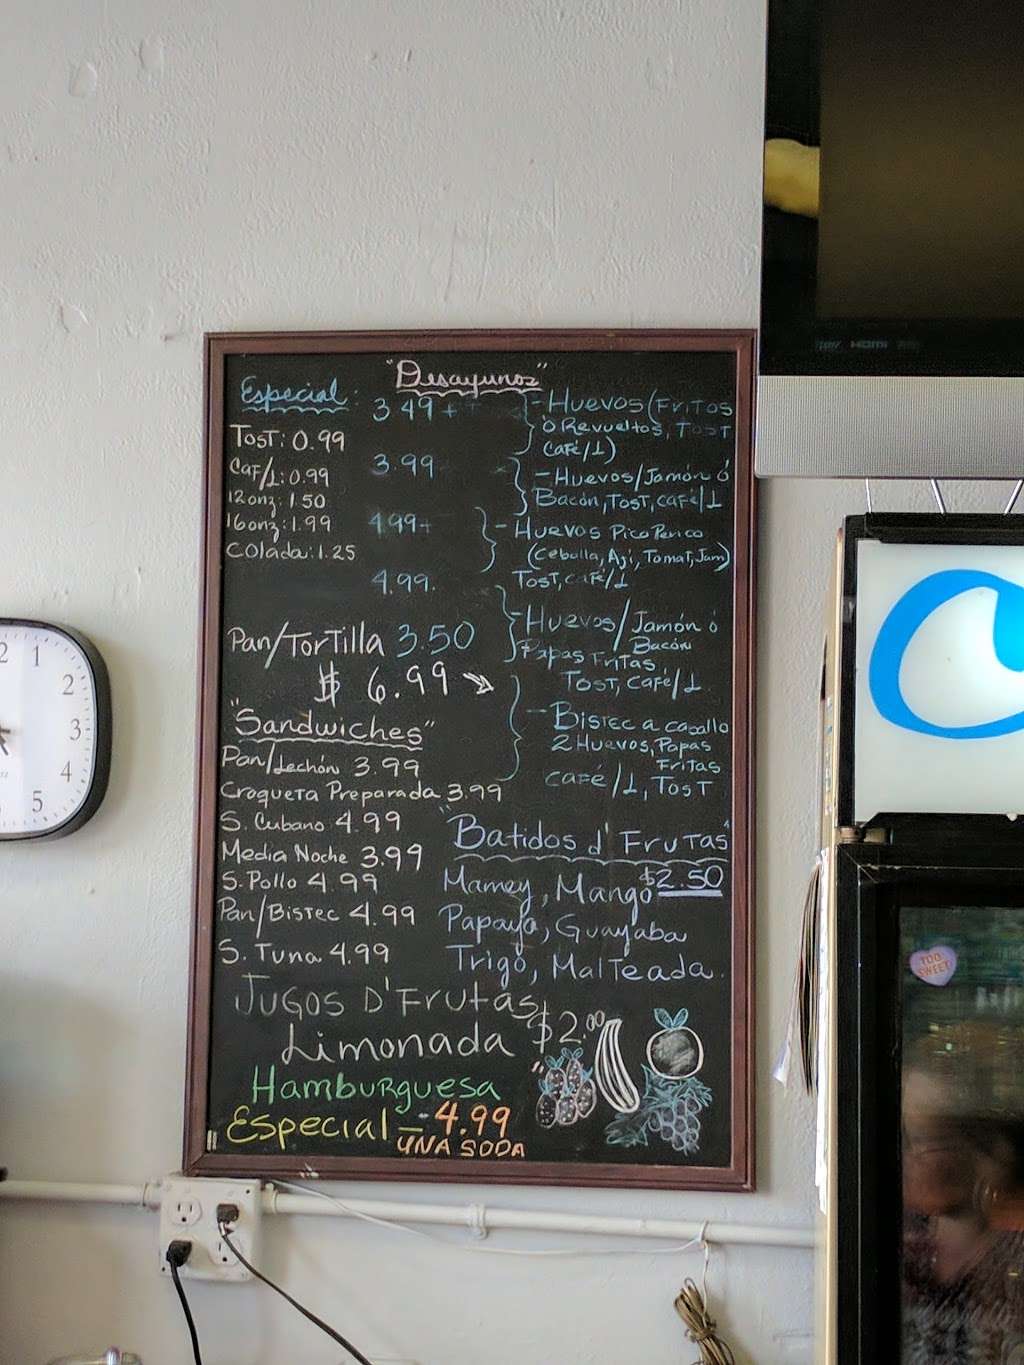 "Desayunos"
Especial:
3.49 ++
Tost: 0.99
Caf/L: 0.99
12onz: 1.50
16onz: 1.99
Colada: 1.25
3.99
4.99+
4.99.
- Huevos (Fritos
ó Revueltos, Tost
Café/L)
- Huevos/Jamón ó
Bacón, Tost, café/L
- Huevos Pico Perico
(Cebolla, Aji, Tomat, Jam)
Tost, café/L
- Huevos/Jamón ó
Bacón
Papas Fritas
Tost, Café/L
Pan/Tortilla 3.50
$ 6.99
- Bistec a caballo
2 Huevos, Papas
Fritas
café/L, Tost
"Sandwiches"
Pan/Lechón 3.99
Croqueta Preparada 3.99
S. Cubano 4.99
Media Noche 3.99
S. Pollo 4.99
Pan/Bistec 4.99
S. Tuna 4.99
"Batidos d' Frutas"
$2.50
Mamey, Mango
Papaya, Guayaba
Trigo, Malteada.
Jugos D'Frutas
Limonada $2.00
Hamburguesa
Especial - 4.99
UNA SODA
HDMI
TOO
SWEET
2
1
2
3
4
5